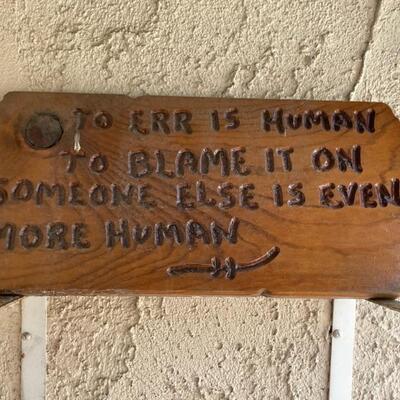 TO ERR IS HUMAN
TO BLAME IT ON
SOMEONE ELSE IS EVEN
MORE HUMAN